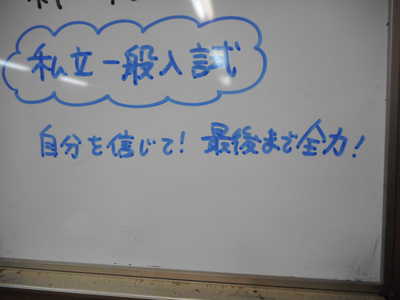 私立一般入試
自分を信じて! 最後まで全力!